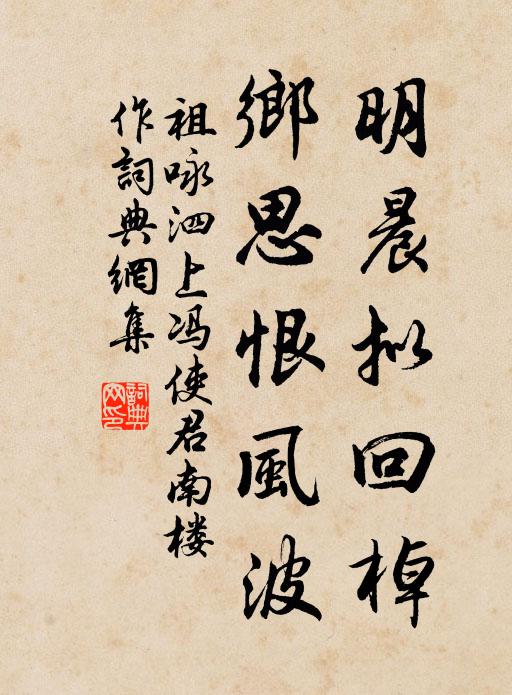 明晨拟回棹
鄉思恨風波
祖咏泗上冯使君南楼
作詞典網集
詞典网印